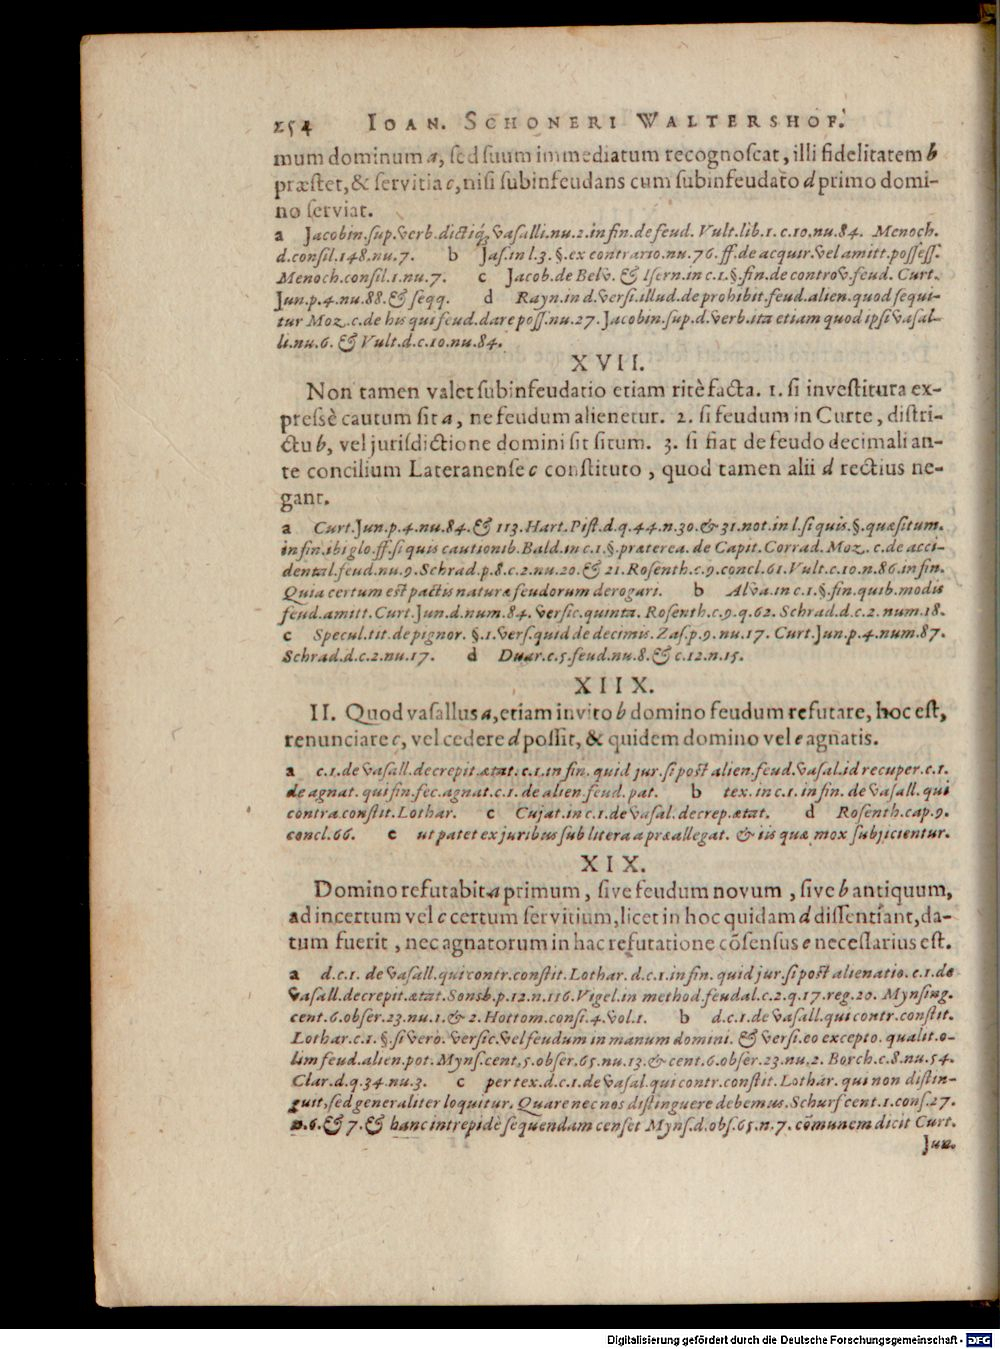 254 IOAN. SCHONERI WALTERSHOF.
mum dominum a, ſed ſuum immediatum recognoſcat, illi fidelitatem b
præſtet, & ſervitia c, niſi ſubinfeudans cum ſubinfeudato d primo domi-
no ſerviat.
a Jacobin. ſup. verb. dictiq́; vaſalli. nu. 2. in fin. de feud. Vult. lib. 1. c. 10. nu. 84. Menoch.
d. conſil. 148. nu. 7. b Jaſ. in l. 3. §. ex contrario. nu. 76. ff. de acquir. vel amitt. poſſeſſ.
Menoch. conſil. 1. nu. 7. c Jacob. de Belv. & Iſern. in c. 1. §. fin. de controv. feud. Curt.
Jun. p. 4. nu. 88. & ſeqq. d Rayn. in d. verſi. illud. de prohibit. feud. alien. quod ſequi-
tur Moz. c. de his qui feud. dare poſſ. nu. 27. Jacobin. ſup. d. verb. ita etiam quod ipſi vaſal-
li. nu. 6. & Vult. d. c. 10. nu. 84.
XVII.
Non tamen valet ſubinfeudatio etiam ritè facta. 1. ſi inveſtitura ex-
preſsè cautum ſit a, ne feudum alienetur. 2. ſi feudum in Curte, diſtri-
ctu b, vel jurisdictione domini ſit ſitum. 3. ſi fiat de feudo decimali an-
te concilium Lateranenſe c conſtituto, quod tamen alii d rectius ne-
gant.
a Curt. Jun. p. 4. nu. 84. & 113. Hart. Piſt. d. q. 44. n. 30. & 31. not. in l. ſi quis. §. quæſitum.
in fin. ibi glo. ff. ſi quis cautionib. Bald. in c. 1. §. præterea. de Capit. Corrad. Moz. c. de acci-
dental. feud. nu. 9. Schrad. p. 8. c. 2. nu. 20. & 21. Roſenth. c. 9. concl. 61. Vult. c. 10. n. 86. in fin.
Quia certum eſt pactis naturæ feudorum derogari. b Alva. in c. 1. §. fin. quib. modis
feud. amitt. Curt. Jun. d. num. 84. verſic. quinta. Roſenth. c. 9. q. 62. Schrad. d. c. 2. num. 18.
c Specul. tit. de pignor. §. 1. verſ. quid de decimis. Zaſ. p. 9. nu. 17. Curt. Jun. p. 4. num. 87.
Schrad. d. c. 2. nu. 17. d Duar. c. 5. feud. nu. 8. & c. 12. n. 15.
XIIX.
II. Quod vaſallus a, etiam invito b domino feudum refutare, hoc eſt,
renunciare c, vel cedere d poſſit, & quidem domino vel e agnatis.
a c. 1. de vaſall. decrepit. ætat. c. 1. in fin. quid jur. ſi poſt alien. feud. vaſal. id recuper. c. 1.
de agnat. qui fin. fec. agnat. c. 1. de alien. feud. pat. b tex. in c. 1. in fin. de vaſall. qui
contra conſtit. Lothar. c Cujat. in c. 1. de vaſal. decrep. ætat. d Roſenth. cap. 9.
concl. 66. e ut patet ex juribus ſub litera a præallegat. & iis quæ mox ſubjicientur.
XIX.
Domino refutabit a primum, ſive feudum novum, ſive b antiquum,
ad incertum vel c certum ſervitium, licet in hoc quidam d diſſentiant, da-
tum fuerit, nec agnatorum in hac refutatione cōſenſus e neceſſarius eſt.
a d. c. 1. de vaſall. qui contr. conſtit. Lothar. d. c. 1. in fin. quid jur. ſi poſt alienatio. c. 1. de
vaſall. decrepit. ætat. Sonsb. p. 12. n. 116. Vigel. in method. feudal. c. 2. q. 17. reg. 20. Mynſing.
cent. 6. obſer. 23. nu. 1. & 2. Hottom. conſi. 4. vol. 1. b d. c. 1. de vaſall. qui contr. conſtit.
Lothar. c. 1. §. ſi verò. verſic. vel feudum in manum domini. & verſi. eo excepto. qualit. o-
lim feud. alien. pot. Mynſ. cent. 5. obſer. 65. nu. 13. & cent. 6. obſer. 23. nu. 2. Borch. c. 8. nu. 54.
Clar. d. q. 34. nu. 3. c per tex. d. c. 1. de vaſal. qui contr. conſtit. Lothar. qui non diſtin-
guit, ſed generaliter loquitur. Quare nec nos diſtinguere debemus. Schurf cent. 1. conſ. 27.
n. 6. & 7. & hanc intrepidè ſequendam cenſet Mynſ. d. obſ. 65. n. 7. cōmunem dicit Curt.
Jun.
Digitalisierung gefördert durch die Deutsche Forschungsgemeinschaft - DFG